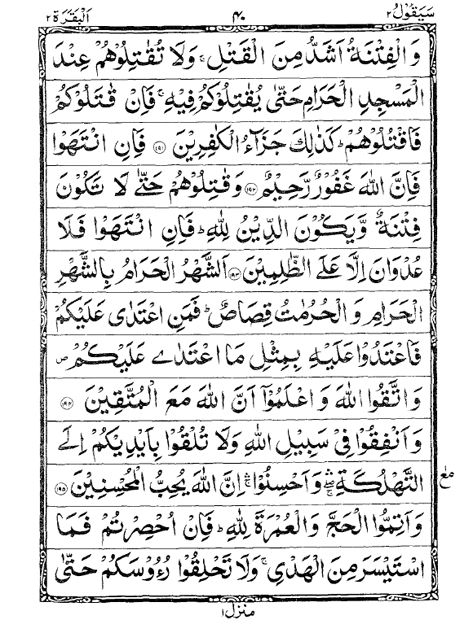 سَيَقُوْلُ ٢ ٤٠ اَلْبَقَرَة ٢
وَالْفِتْنَةُ اَشَدُّ مِنَ الْقَتْلِ ۚ وَلَا تُقٰتِلُوْهُمْ عِنْدَ
الْمَسْجِدِ الْحَرَامِ حَتّٰى يُقٰتِلُوْكُمْ فِيْهِ ۚ فَاِنْ قٰتَلُوْكُمْ
فَاقْتُلُوْهُمْ ؕ كَذٰلِكَ جَزَآءُ الْكٰفِرِيْنَ ﴿۱۹۱﴾ فَاِنِ انْتَهَوْا
فَاِنَّ اللّٰهَ غَفُوْرٌ رَّحِيْمٌ ﴿۱۹۲﴾ وَقٰتِلُوْهُمْ حَتّٰى لَا تَكُوْنَ
فِتْنَةٌ وَّيَكُوْنَ الدِّيْنُ لِلّٰهِ ؕ فَاِنِ انْتَهَوْا فَلَا
عُدْوَانَ اِلَّا عَلَى الظّٰلِمِيْنَ ﴿۱۹۳﴾ اَلشَّهْرُ الْحَرَامُ بِالشَّهْرِ
الْحَرَامِ وَالْحُرُمٰتُ قِصَاصٌ ؕ فَمَنِ اعْتَدٰى عَلَيْكُمْ
فَاعْتَدُوْا عَلَيْهِ بِمِثْلِ مَا اعْتَدٰى عَلَيْكُمْ ۪
وَاتَّقُوا اللّٰهَ وَاعْلَمُوْٓا اَنَّ اللّٰهَ مَعَ الْمُتَّقِيْنَ ﴿۱۹۴﴾
وَاَنْفِقُوْا فِيْ سَبِيْلِ اللّٰهِ وَلَا تُلْقُوْا بِاَيْدِيْكُمْ اِلَى
التَّهْلُكَةِ ۛۚ وَاَحْسِنُوْا ۛۚ اِنَّ اللّٰهَ يُحِبُّ الْمُحْسِنِيْنَ ﴿۱۹۵﴾
مع
وَاَتِمُّوا الْحَجَّ وَالْعُمْرَةَ لِلّٰهِ ؕ فَاِنْ اُحْصِرْتُمْ فَمَا
اسْتَيْسَرَ مِنَ الْهَدْيِ ۚ وَلَا تَحْلِقُوْا رُءُوْسَكُمْ حَتّٰى
منزل ١